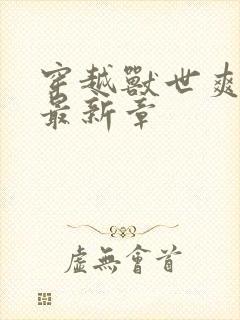 穿越獸世爽
最新章
虛無會首